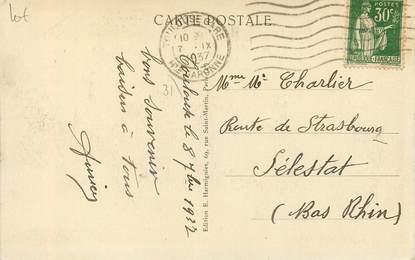 lot
CARTE POSTALE
TOULOUSE GARE
10
7 - IX
37
HTE GARONNE
POSTES
30c
REPUBLIQUE FRANÇAISE
31
Toulouse le 8 7bre 1937
bons souvenirs
baisers à tous
Edition E. Hermignies, 69, rue Saint-Martin, Paris
Mme Mr Charlier
Route de Strasbourg
Sélestat
(Bas Rhin)